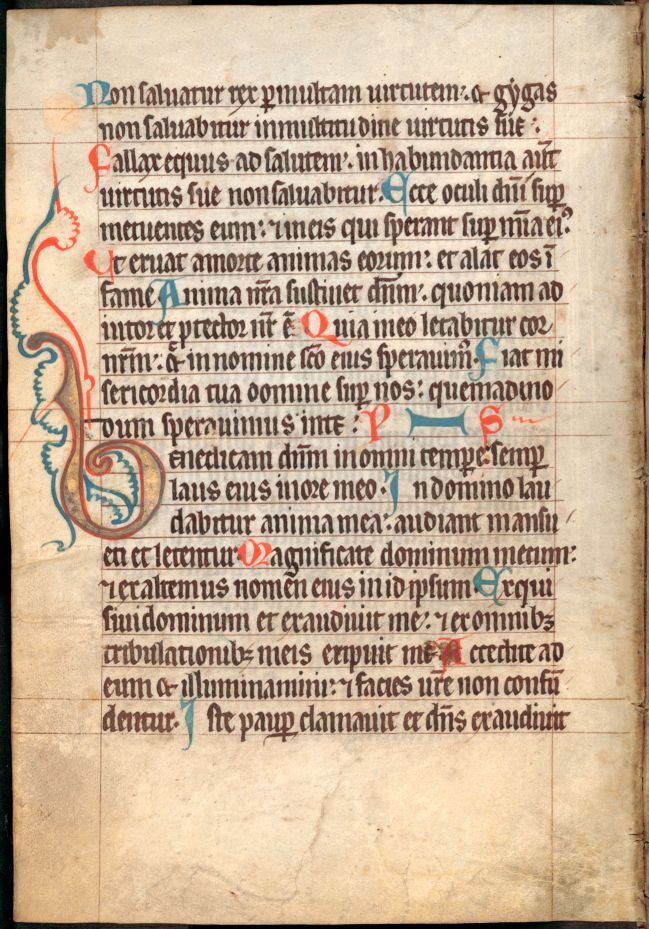 Non saluatur rex ꝑ multam uirtutem: ⁊ gygas
non saluabitur in multitudine uirtutis sue:
Fallax equus ad salutem: in habundantia aut̄
uirtutis sue non saluabitur. Ecce oculi dn̄i suꝑ
metuentes eum: ⁊ in eis qui sperant suꝑ mīa ei⁹
Ut eruat a morte animas eorum: et alat eos ī
fame Anima nr̄a sustinet dn̄m: quoniam ad
iutor et ꝓtector nr̄ ē Quia in eo letabitur cor
nr̄m: ⁊ in nomine sc̄o eius sperauim⁹. Fiat mi
sericordia tua domine suꝑ nos: quemadmo
dum sperauimus in te: P S
Benedicam dn̄m in omni tempe: semꝑ
laus eius in ore meo. In domino lau
dabitur anima mea: audiant mansu
eti et letentur. Magnificate dominum mecum:
⁊ exaltemus nomen eius in id ipsum. Exqui
siui dominum et exaudiuit me: ⁊ ex omnibꝫ
tribulationibꝫ meis eripuit me. Accedite ad
eum ⁊ illuminamini: ⁊ facies ur̄e non confū
dentur. Iste pauꝑ clamauit et dn̄s exaudiuit